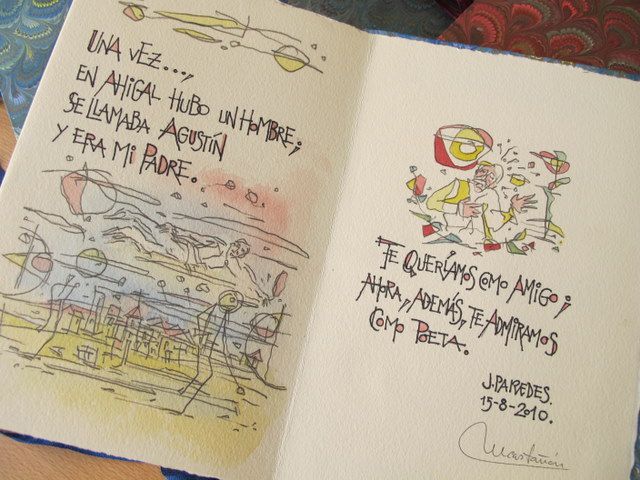 UNA VEZ...,
EN AHIGAL HUBO UN HOMBRE;
SE LLAMABA AGUSTÍN
Y ERA MI PADRE.
TE QUERÍAMOS COMO AMIGO;
AHORA, ADEMÁS, TE ADMIRAMOS
COMO POETA.
J. PAREDES.
15-8-2010.